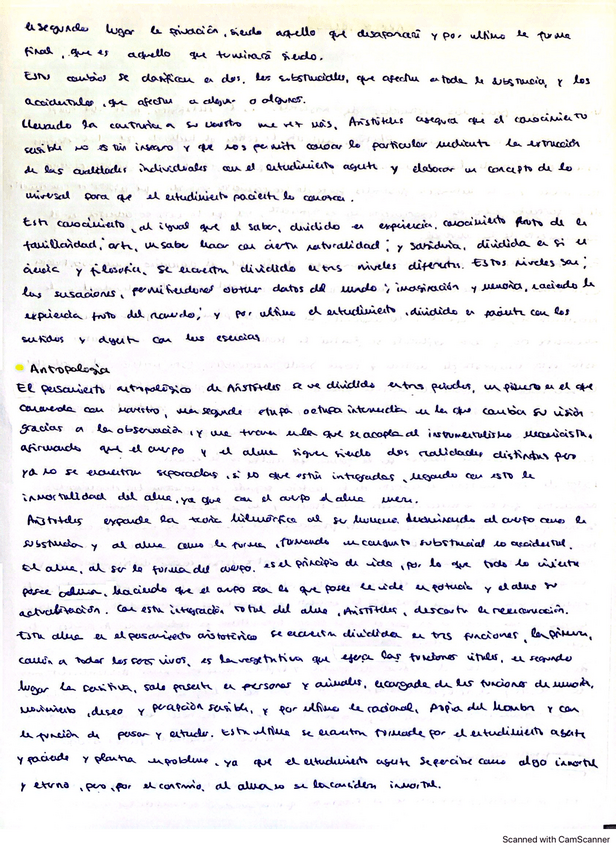 segundo lugar la privación, siendo aquello que desaparecerá y por ultimo la forma
final, que es aquello que terminará siendo.
Estos cambios se clasifican en dos, los substanciales, que afectan a toda la substancia, y los
accidentales, que afectan a alguna o algunos.
Llevando la contraria a su maestro una vez más, Aristóteles asegura que el conocimiento
sensible no es sin y que nos permite conocer lo particular mediante la extracción
de las cualidades individuales con el entendimiento agente y elaborar un concepto de lo
universal para que el entendimiento paciente lo conozca.
Este conocimiento, al igual que el saber, dividido en experiencia, conocimiento fruto de la
familiaridad; arte, un saber hacer con cierta naturalidad; y sabiduría, dividida en si en
ciencia y filosofía, se encuentra dividido en tres niveles diferentes. Estos niveles son;
las sensaciones, permitiendonos obtener datos del mundo; imaginación y memoria, naciendo la
experiencia fruto del recuerdo; y por ultimo el entendimiento, dividido en paciente con los
sentidos y agente con las esencias
Antropología
El pensamiento antropológico de Aristóteles se ve dividido en tres periodos, un primero en el que
concuerda con maestro, una segunda etapa o etapa intermedia en la que cambia su visión
gracias a la observación, y una tercera en la que se acopla al instrumentalismo mecanicista,
afirmando que el cuerpo y el alma siguen siendo dos realidades distintas pero
ya no se encuentran separadas, si no que están integradas, negando con esto la
inmortalidad del alma, ya que con el cuerpo el alma muere.
Aristóteles expande la teoría hilemórfica al ser humano denominando al cuerpo como la
substancia y al alma como la forma, formando un conjunto substancial no accidental.
El alma, al ser la forma del cuerpo, es el principio de vida, por lo que todo lo viviente
posee alma, haciendo que el cuerpo sea lo que posee la vida en potencia y el alma su
actualización. Con esta integración total del alma, Aristóteles, descarta la reencarnación.
Esta alma en el pensamiento aristotélico se encuentra dividida en tres funciones, la primera,
común a todos los seres vivos, es la vegetativa que ejerce las funciones vitales, en segundo
lugar la sensitiva, solo presente en personas y animales, encargada de las funciones de memoria,
movimiento, deseo y percepción sensible, y por ultimo la racional, propia del hombre y con
la función de pensar y entender. Esta ultima se encuentra formada por el entendimiento agente
y paciente y plantea un problema, ya que el entendimiento agente se percibe como algo inmortal
y eterno, pero, por el contrario, al alma no se la considera inmortal.
Scanned with CamScanner